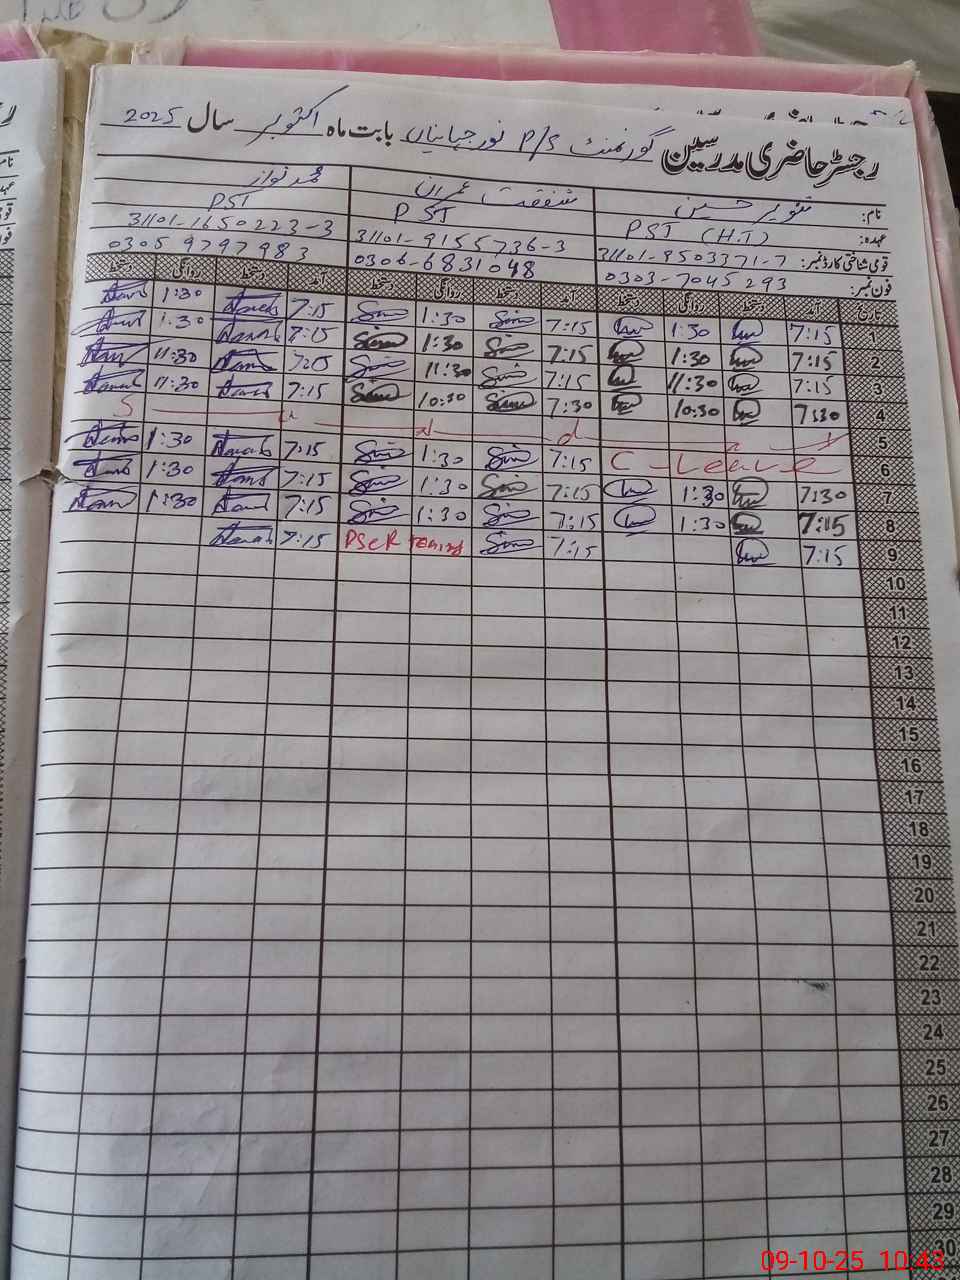 رجسٹر حاضری مدرسین گورنمنٹ P/S نور جہانیاں بابت ماہ اکتوبر سال 2025
نام: تنویر حسین شفقت عمران محمد نواز
عہدہ: PST (H.T) PST PST
قومی شناختی کارڈ نمبر: 31101-9503371-7 31101-9155736-3 31101-1650223-3
فون نمبر: 0303-7045293 0306-6831048 0305 9797983
تاریخ آمد دستخط روانگی دستخط آمد دستخط روانگی دستخط آمد دستخط روانگی دستخط
1 7:15 1:30 7:15 1:30 7:15 1:30
2 7:15 1:30 7:15 1:30 7:15 1:30
3 7:15 11:30 7:15 11:30 7:15 11:30
4 7:30 10:30 7:30 10:30 7:15 11:30
5 S u n d a y
6 C-Leave 7:15 1:30 7:15 1:30
7 7:30 1:30 7:15 1:30 7:15 1:30
8 7:15 1:30 7:15 1:30 7:15 1:30
9 7:15 7:15 PSCR 7:15
10
11
12
13
14
15
16
17
18
19
20
21
22
23
24
25
26
27
28
29
30
09-10-25 10:43